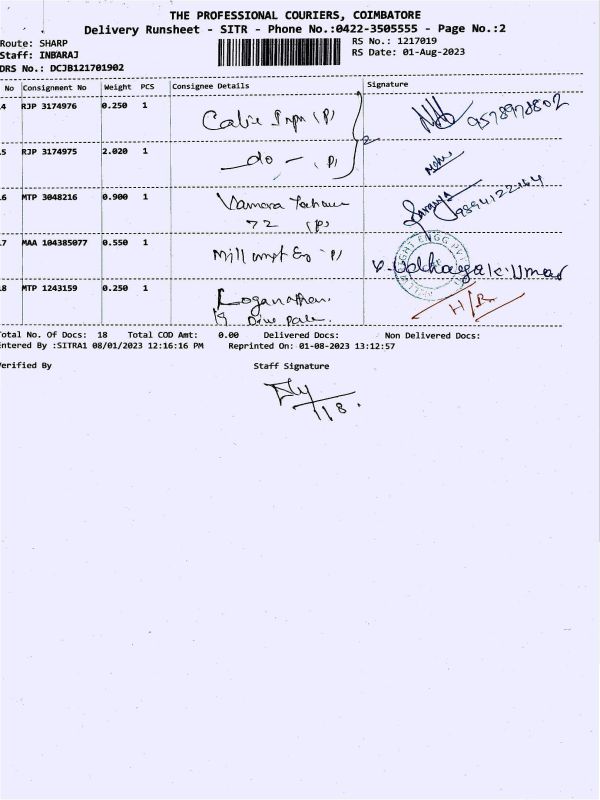 THE PROFESSIONAL COURIERS, COIMBATORE
Delivery Runsheet - SITR - Phone No.:0422-3505555 - Page No.:2
Route: SHARP
RS No.: 1217019
Staff: INBARAJ
RS Date: 01-Aug-2023
DRS No.: DCJB121701902
No Consignment No Weight PCS Consignee Details Signature
4 RJP 3174976 0.250 1 (P)
5 RJP 3174975 2.020 1 -do- (P)
6 MTP 3048216 0.900 1
72 (P)
7 MAA 104385077 0.550 1 Mill
8 MTP 1243159 0.250 1 Loganathan
H/R
Total No. Of Docs: 18 Total COD Amt: 0.00 Delivered Docs: Non Delivered Docs:
Entered By :SITRA1 08/01/2023 12:16:16 PM Reprinted On: 01-08-2023 13:12:57
Verified By Staff Signature
1/8.